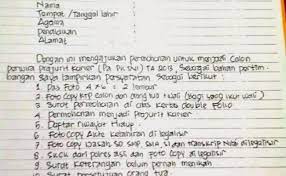 Nama :
Tempat /Tanggal lahir :
Agama :
Pendidikan
Alamat :
Dengan ini mengajukan Permohonan untuk menjadi Calon
Perwira Prajurit Karier (Pa PK TNI) TA 2013, Sebagai bahan pertim-
bangan Saya lampirkan Persyaratan Sebagai berikut :
1. Pas Foto 4x6 = 2 lembar
2. Foto Copy KTP Calon dan orang tua / wali (bagi yang ikut wali)
3. Surat Permohonan di atas kertas double Folio
4. Permohonan menjadi Prajurit Karier
5. Daftar riwayat Hidup
6. Foto Copy Akte Kelahiran di legalisir
7. Foto Copy Ijazah SD SMP SMA, S1 dan transkrip Nilai di legalisir
8. SKCK dari Polres asli dan Foto Copy di legalisir
9. Surat Keterangan belum Pernah menikah
Surat Persetujuan orang tua